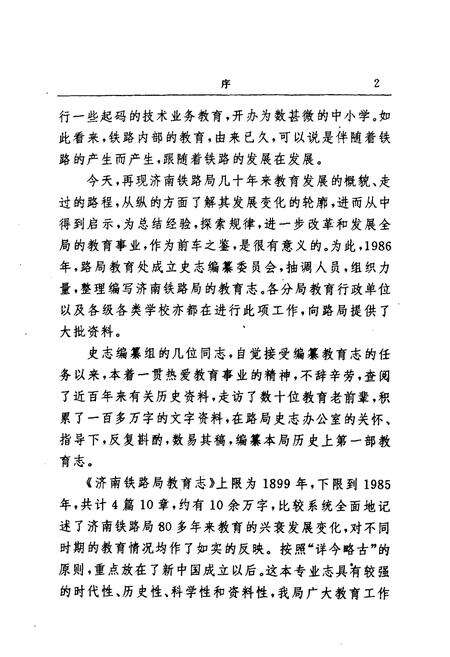 序 2
行一些起码的技术业务教育，开办为数甚微的中小学。如
此看来，铁路内部的教育，由来已久，可以说是伴随着铁
路的产生而产生，跟随着铁路的发展在发展。
今天，再现济南铁路局几十年来教育发展的概貌、走
过的路程，从纵的方面了解其发展变化的轮廓，进而从中
得到启示，为总结经验，探索规律，进一步改革和发展全
局的教育事业，作为前车之鉴，是很有意义的。为此，1986
年，路局教育处成立史志编纂委员会，抽调人员，组织力
量，整理编写济南铁路局的教育志。各分局教育行政单位
以及各级各类学校亦都在进行此项工作，向路局提供了
大批资料。
史志编纂组的几位同志，自觉接受编纂教育志的任
务以来，本着一贯热爱教育事业的精神，不辞辛劳，查阅
了近百年来有关历史资料，走访了数十位教育老前辈，积
累了一百多万字的文字资料，在路局史志办公室的关怀、
指导下，反复斟酌，数易其稿，编纂本局历史上第一部教
育志。
《济南铁路局教育志》上限为1899年，下限到1985
年，共计4篇10章，约有10余万字，比较系统全面地记
述了济南铁路局80多年来教育的兴衰发展变化，对不同
时期的教育情况均作了如实的反映。按照“详今略古”的
原则，重点放在了新中国成立以后。这本专业志具有较强
的时代性、历史性、科学性和资料性，我局广大教育工作